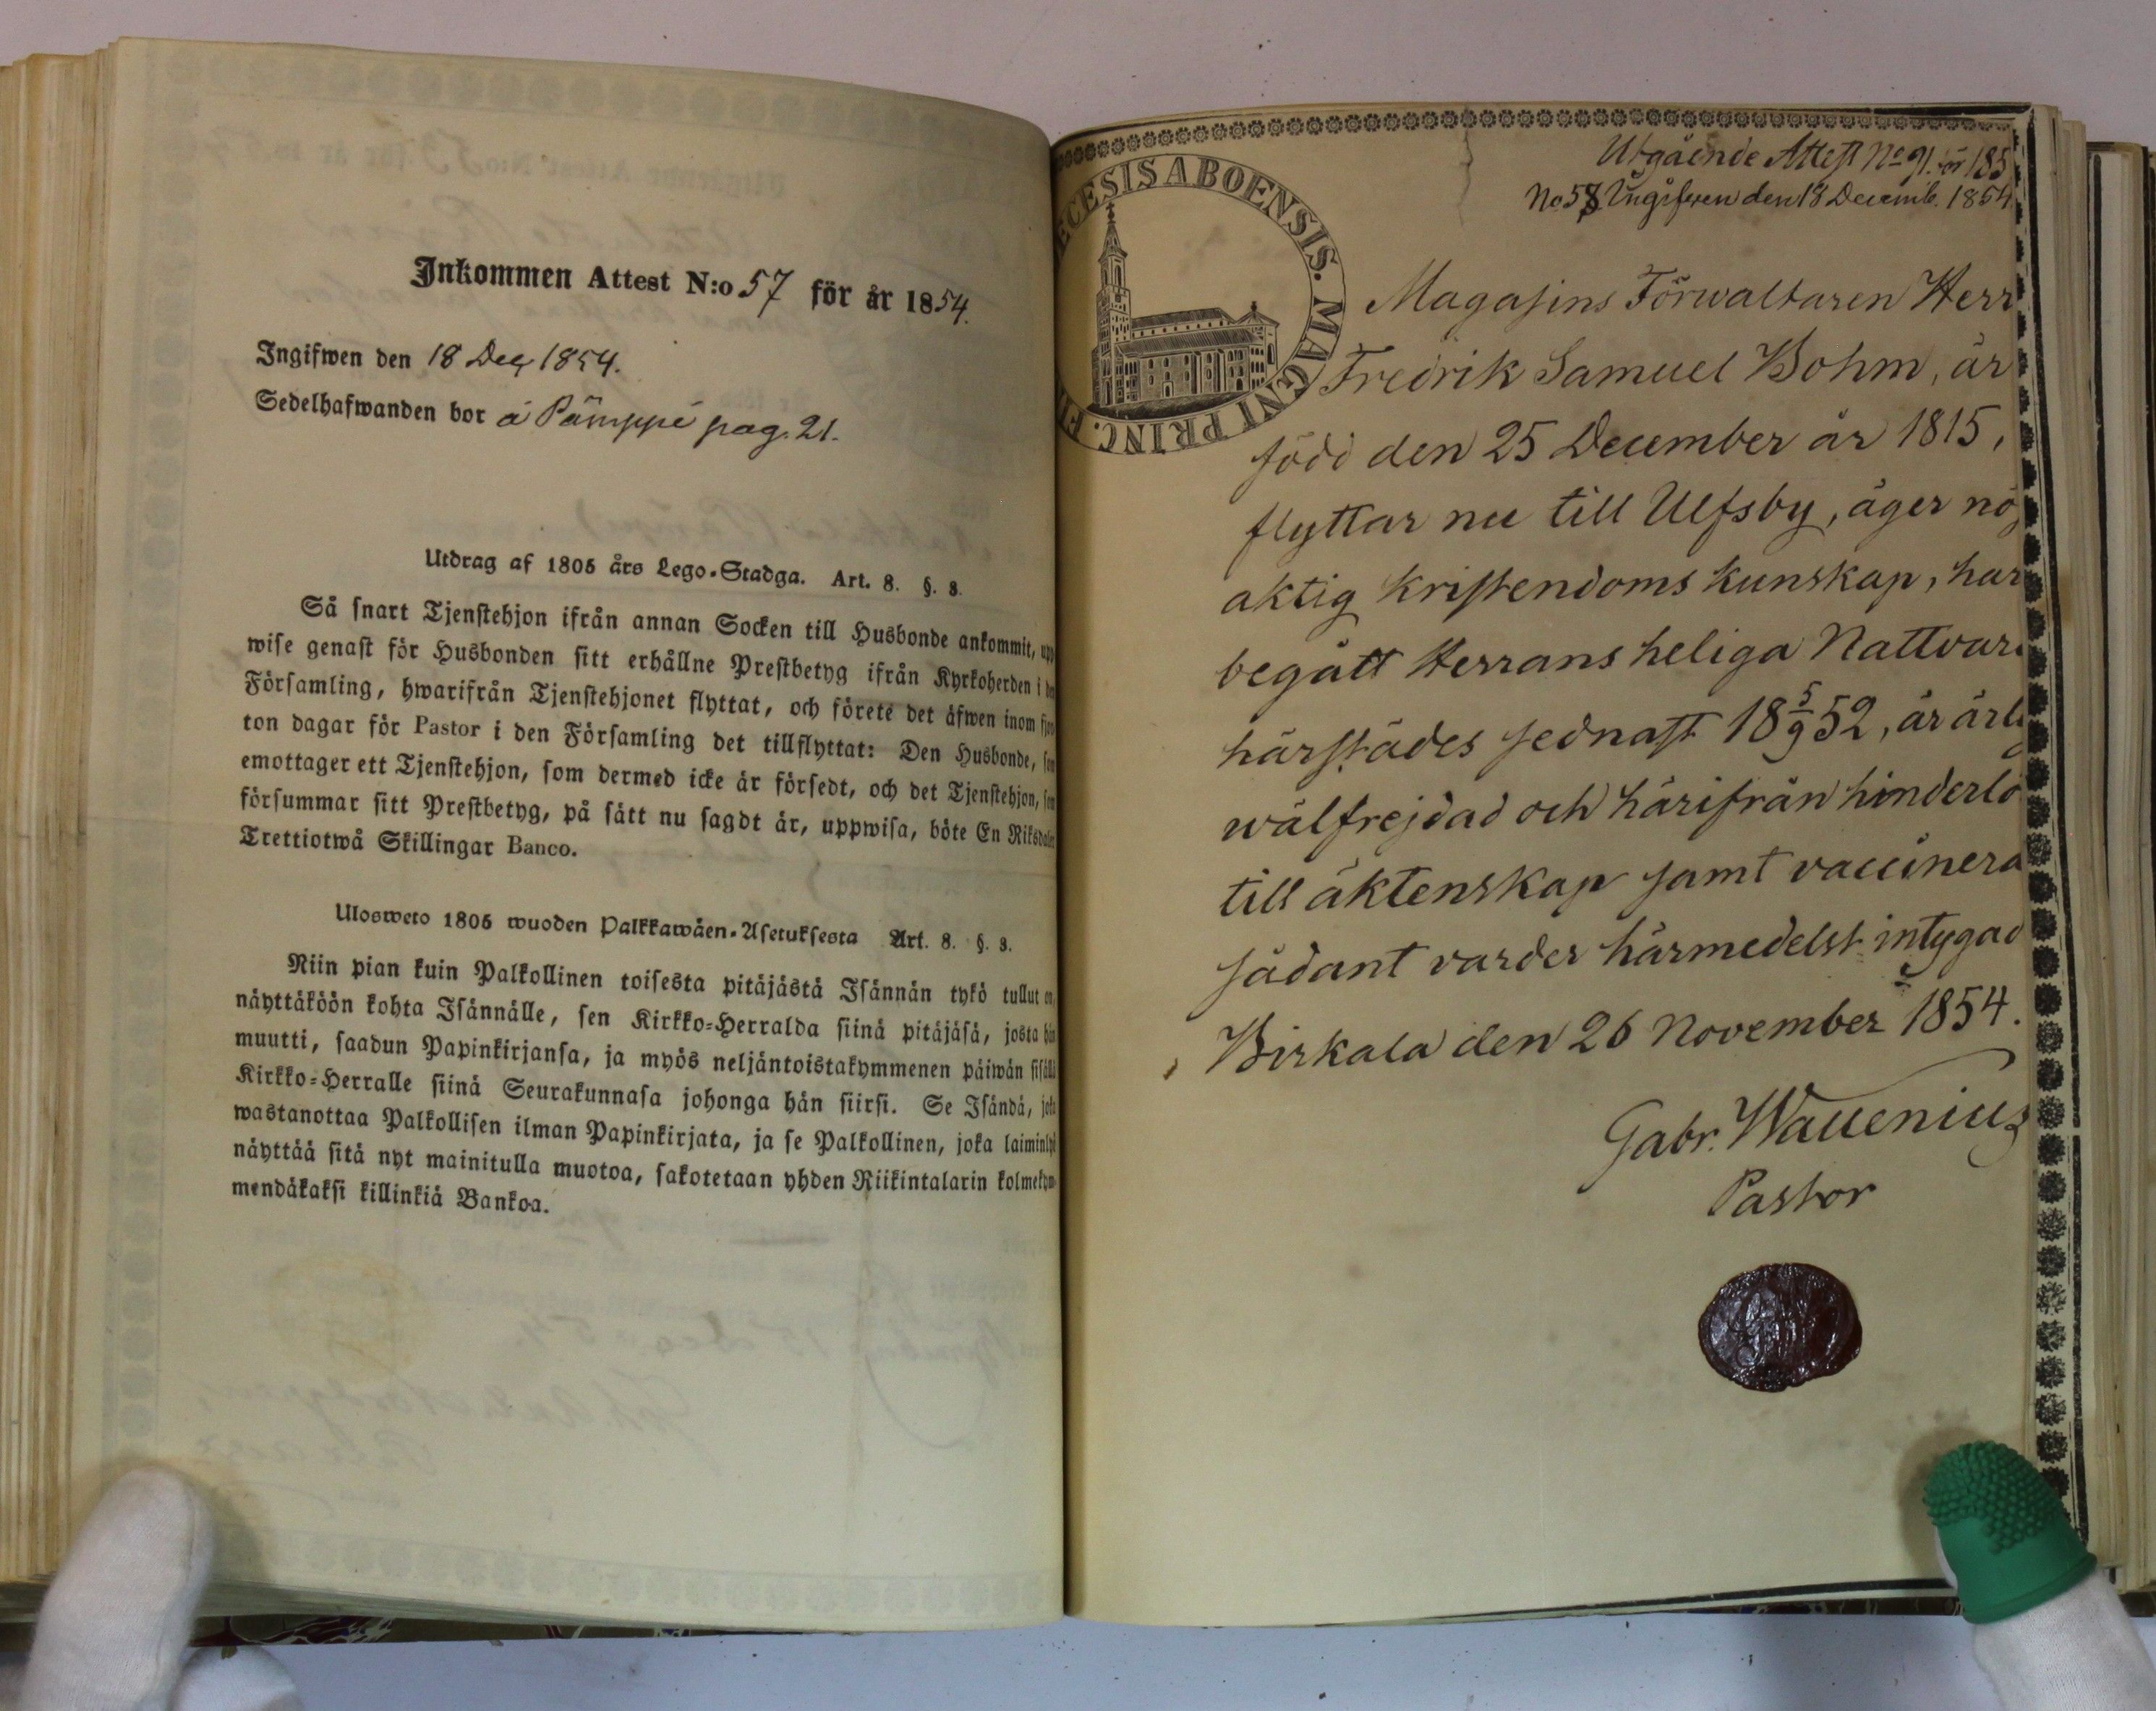 Inkommen Attest N:o 57 för år 1854.
Ingifwen den 18 Dec 1854.
Sedelhafwanden bor å Pämppi pag. 21.
Utdrag af 1805 års Lego-Stadga. Art. 8. §. 8.
Så snart Tjenstehjon ifrån annan Socken till Husbonde ankommit, upp
wise genast för Husbonden sitt erhållne Prestbetyg ifrån Kyrkoherden i den
Församling, hwarifrån Tjenstehjonet flyttat, och förete det äfwen inom fjor
ton dagar för Pastor i den Församling det tillflyttat: Den Husbonde, som
emottager ett Tjenstehjon, som dermed icke är försedt, och det Tjenstehjon, som
försummar sitt Prestbetyg, på sätt nu sagdt är, uppwisa, böte En Riksdaler
Trettiotwå Skillingar Banco.
Ulosweto 1805 wuoden Palkkawäen-Asetuksesta Art. 8. §. 8.
Niin pian kuin Palkollinen toisesta pitäjästä Isännän tykö tullut on,
näyttäköön kohta Isännälle, sen Kirkko-Herralda siinä pitäjäsä, josta hän
muutti, saadun Papinkirjansa, ja myös neljäntoistakymmenen päiwän sisällä
Kirkko-Herralle siinä Seurakunnasa johonga hän siirsi. Se Isändä, joka
wastanottaa Palkollisen ilman Papinkirjata, ja se Palkollinen, joka laiminlyö
näyttää sitä nyt mainitulla muotoa, sakotetaan yhden Riikintalarin kolmekym-
mendäkaksi killinkiä Bankoa.
ECESIS ABOENSIS. MAGNI PRINC. FI
Utgående Attest No 91. för 185
No 58 Ingifven den 18 Decemb. 1854
Magasins Förwaltaren Herr
Fredrik Samuel Bohm, är
född den 25 December år 1815,
flyttar nu till Ulfsby, äger nöj
aktig kristendoms kunskap, har
begått Herrans heliga Nattvard
härstädes sednast 18 5/9 52, är ärlig
wälfrejdad och härifrån hinderlö
till äktenskap samt vaccinera
sådant varder härmedelst intygad
Birkala den 26 November 1854.
Gabr. Wallenius
Pastor